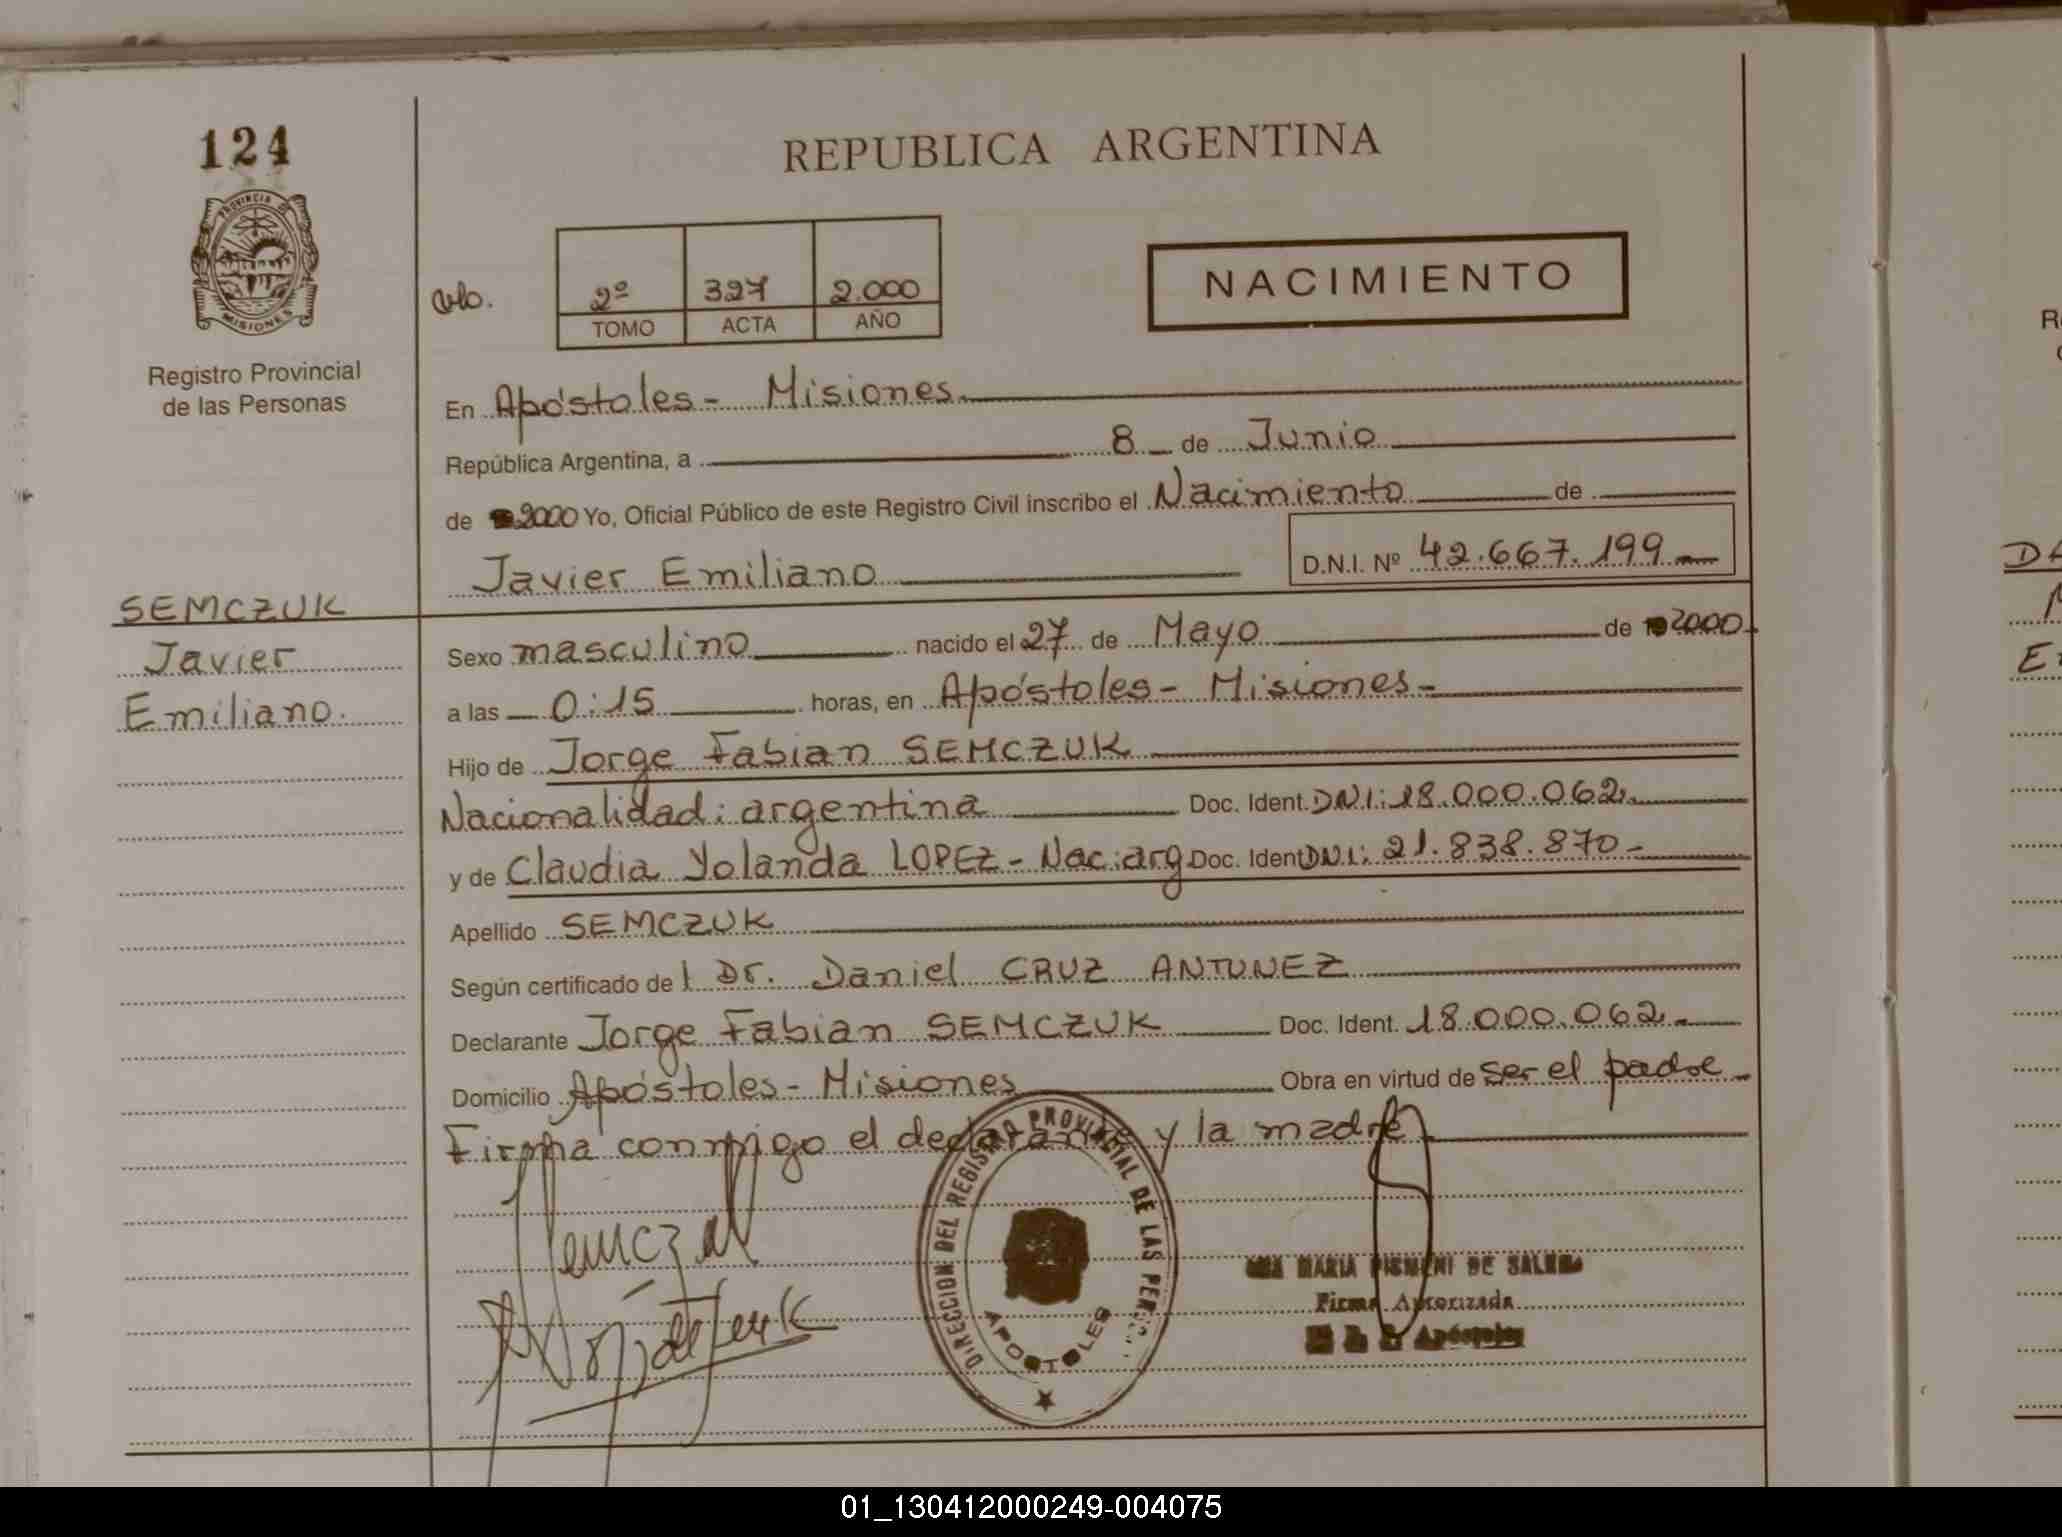 124
PROVINCIA DE
MISIONES
Registro Provincial
de las Personas
SEMCZUK
Javier
Emiliano.
REPUBLICA ARGENTINA
2º 327 2.000
TOMO ACTA AÑO
NACIMIENTO
En Apóstoles - Misiones
República Argentina, a 8 de Junio
de 2000 Yo, Oficial Público de este Registro Civil inscribo el Nacimiento de
Javier Emiliano D.N.I. Nº 42.667.199
Sexo masculino nacido el 27 de Mayo de 2000
a las 0:15 horas, en Apóstoles - Misiones -
Hijo de Jorge Fabian SEMCZUK
Nacionalidad: argentina Doc. Ident. DNI: 18.000.062.
y de Claudia Yolanda LOPEZ - Nac: arg Doc. Ident DNI: 21.838.870 -
Apellido SEMCZUK
Según certificado de l Dr. Daniel CRUZ ANTUNEZ
Declarante Jorge Fabian SEMCZUK Doc. Ident. 18.000.062.
Domicilio Apóstoles - Misiones Obra en virtud de ser el padre
Firma conmigo el declarante y la madre
DIRECCION DEL REGISTRO PROVINCIAL DE LAS
APOSTOLES
MARIA DE
Firma Autorizada
Apóstoles
DA
01_130412000249-004075